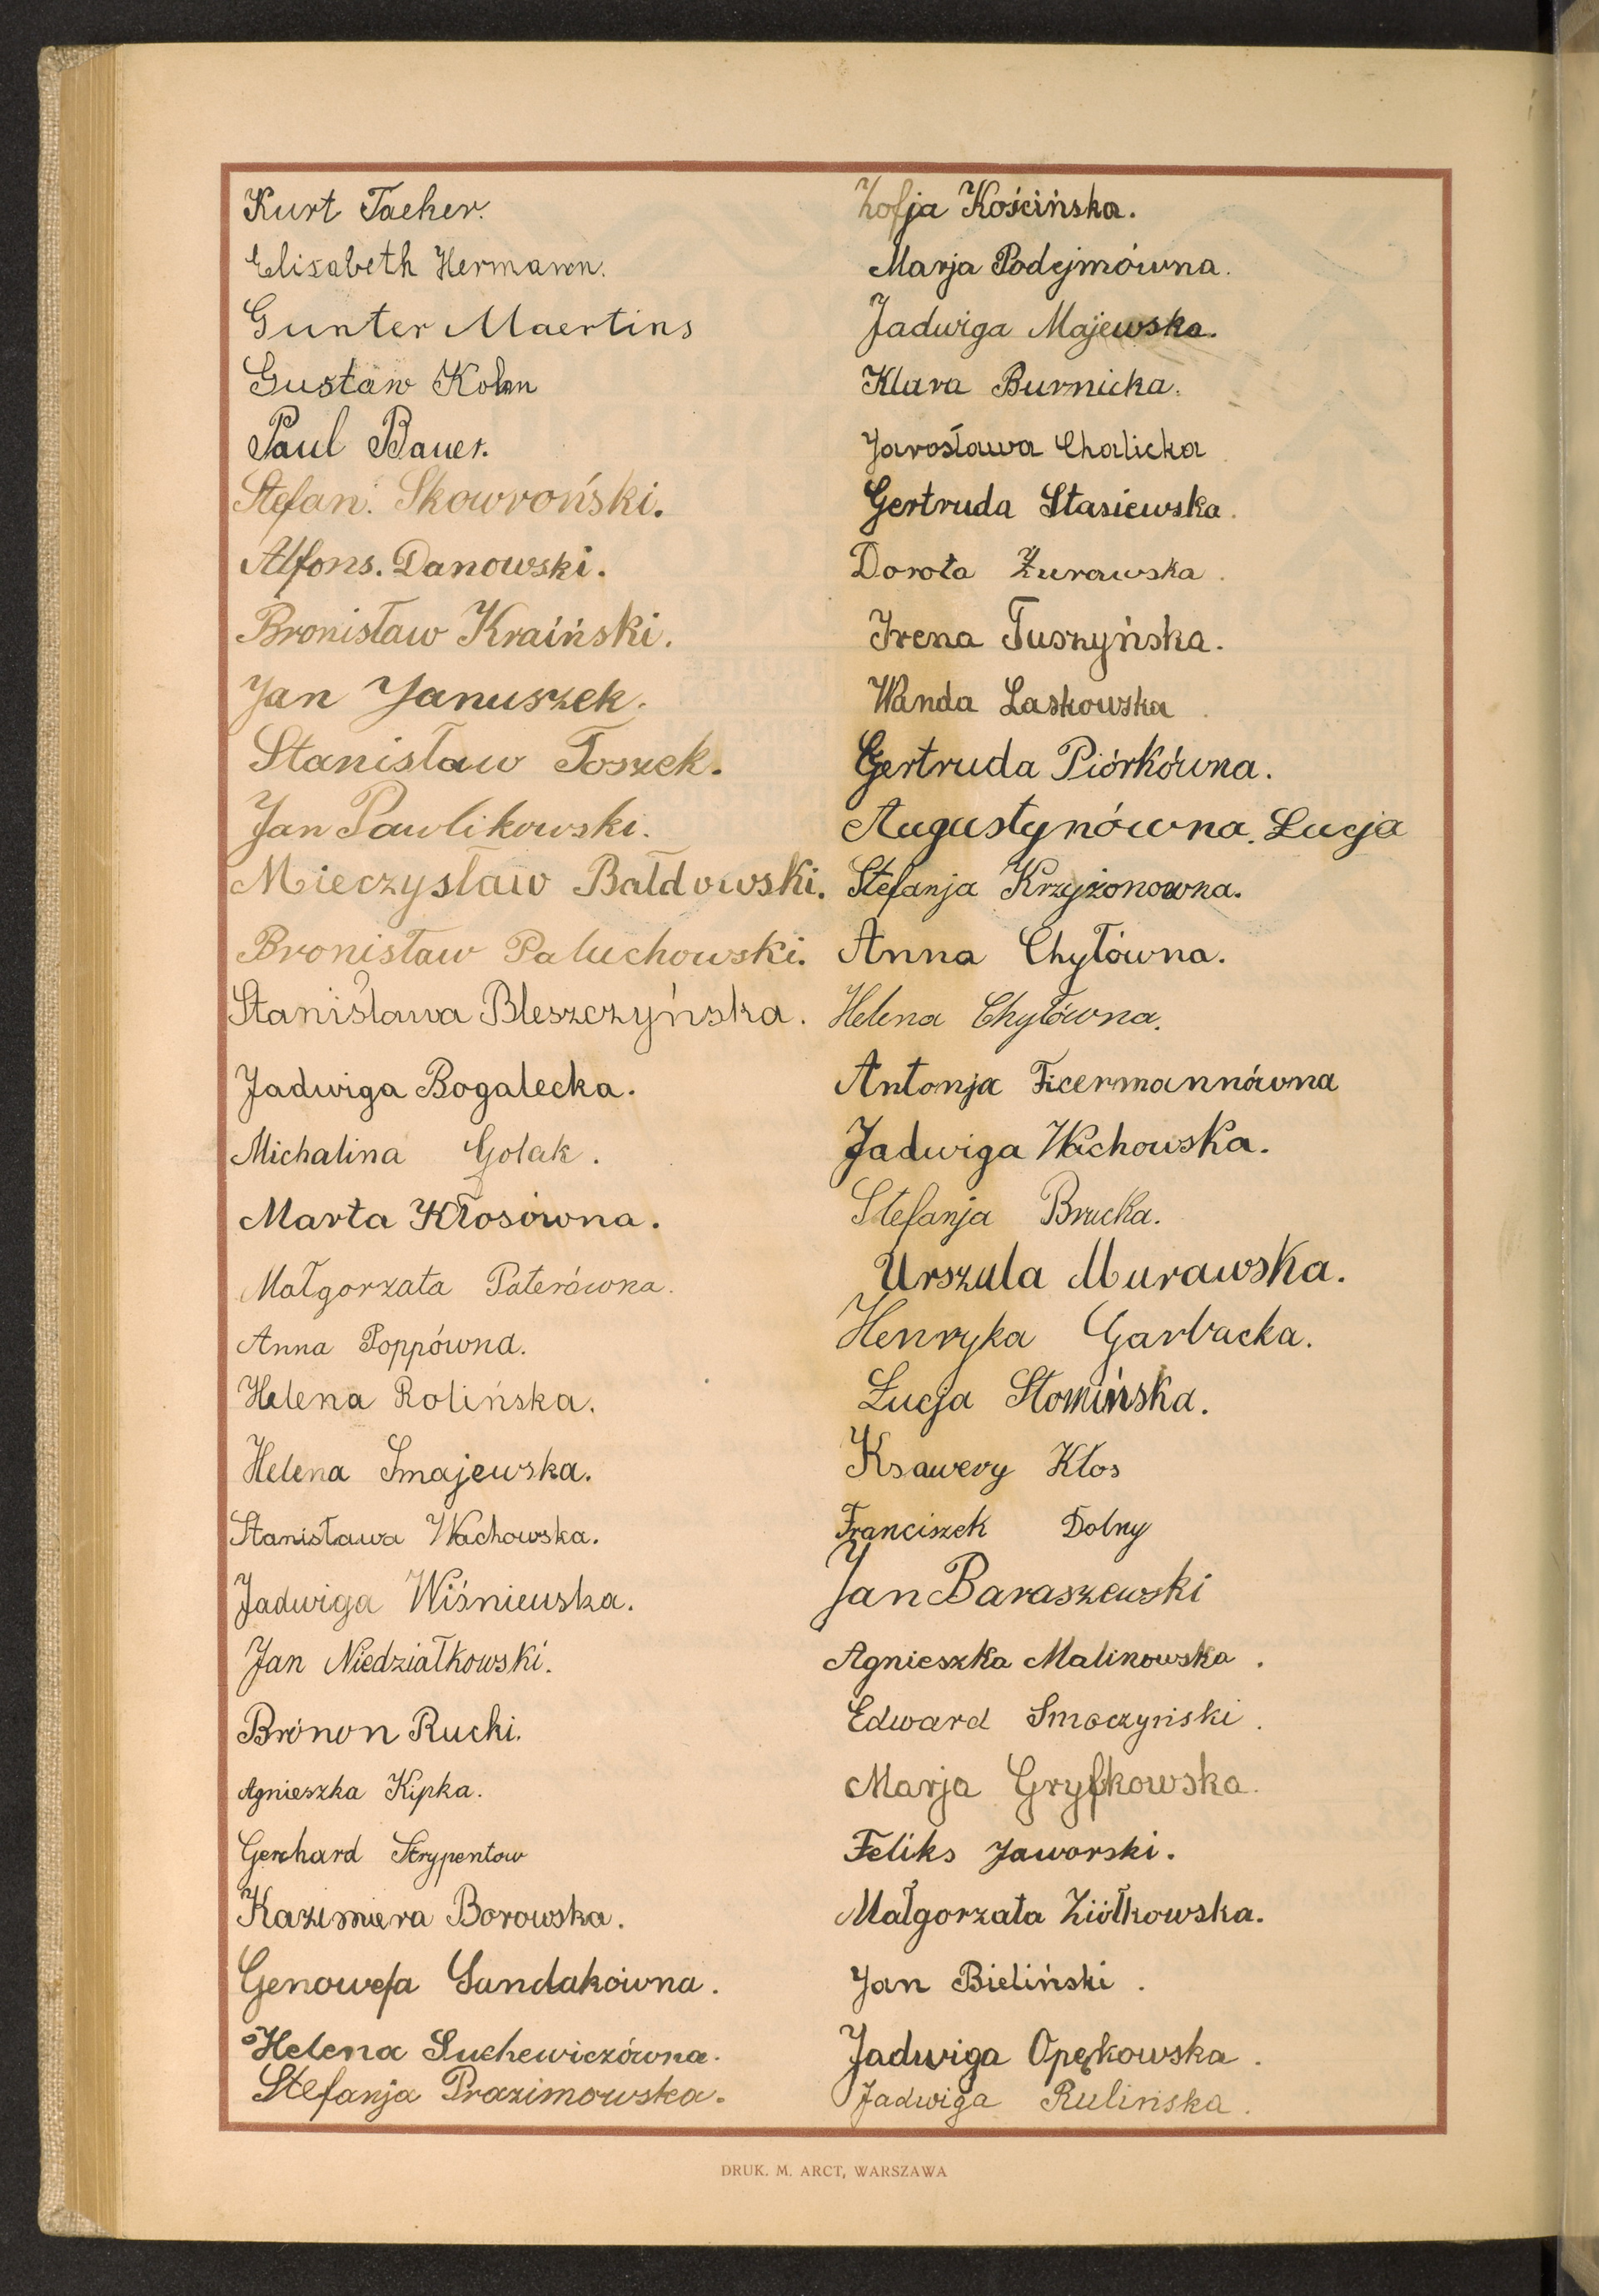 Kurt Tacher.
Elisabeth Hermann.
Gunter Maertins
Gustaw Kohn
Paul Bauer.
Stefan Skowroński.
Alfons. Danowski.
Bronisław Kraiński.
Jan Januszek.
Stanisław Toszek.
Jan Pawlikowski.
Mieczysław Bałdowski.
Bronisław Paluchowski.
Stanisława Bleszczyńska.
Jadwiga Bogalecka.
Michalina Golak.
Marta Kłosówna.
Małgorzata Paterówna.
Anna Poppówna.
Helena Rolińska.
Helena Smajewska.
Stanisława Wachowska.
Jadwiga Wiśniewska.
Jan Niedziałkowski.
Brónon Rucki.
Agnieszka Kipka.
Gerhard Strypentow
Kazimiera Borowska.
Genowefa Sundakówna.
Helena Suchewiczówna.
Stefanja Prazimowska.
Zofja Kościńska.
Marja Podejmówna.
Jadwiga Majewska.
Klara Burnicka.
Jarosława Chalicka
Gertruda Stasiewska.
Dorota Żurawska.
Irena Tuszyńska.
Wanda Laskowska.
Gertruda Piórkówna.
Augustynówna. Łucja
Stefanja Krzyżonowna.
Anna Chyłówna.
Helena Chyłówna.
Antonja
Jadwiga Wachowska.
Stefanja Brucka.
Urszula Murawska.
Henryka Garbacka.
Łucja Słomińska.
Ksawery Kłos
Franciszek Dolny
Jan Baraszewski
Agnieszka Malinowska.
Edward Smoczyński.
Marja Gryfkowska.
Feliks Jaworski.
Małgorzata Ziółkowska.
Jan Bieliński.
Jadwiga Opękowska.
Jadwiga Rulińska.
DRUK. M. ARCT, WARSZAWA